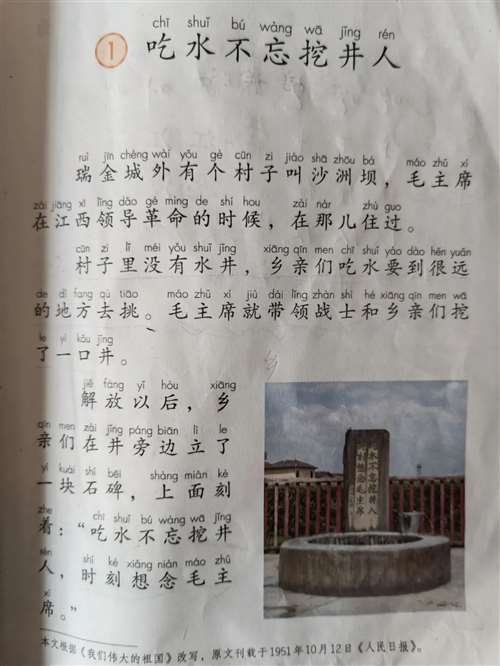 chī shuǐ bú wàng wā jǐng rén
1 吃水不忘挖井人
ruì jīn chéng wài yǒu gè cūn zi jiào shā zhōu bà máo zhǔ xí
瑞金城外有个村子叫沙洲坝，毛主席
zài jiāng xī lǐng dǎo gé mìng de shí hou zài nàr zhù guo
在江西领导革命的时候，在那儿住过。
cūn zi lǐ méi yǒu shuǐ jǐng xiāng qīn men chī shuǐ yào dào hěn yuǎn
村子里没有水井，乡亲们吃水要到很远
de dì fang qù tiāo máo zhǔ xí jiù dài lǐng zhàn shì hé xiāng qīn men wā
的地方去挑。毛主席就带领战士和乡亲们挖
le yì kǒu jǐng
了一口井。
jiě fàng yǐ hòu xiāng
解放以后，乡
qīn men zài jǐng páng biān lì le
亲们在井旁边立了
yí kuài shí bēi shàng miàn kè
一块石碑，上面刻
zhe chī shuǐ bú wàng wā jǐng
着：“吃水不忘挖井
rén shí kè xiǎng niàn máo zhǔ
人，时刻想念毛主
xí
席。”
吃水不忘挖井人
时刻想念毛主席
本文根据《我们伟大的祖国》改写，原文刊载于1951年10月12日《人民日报》。